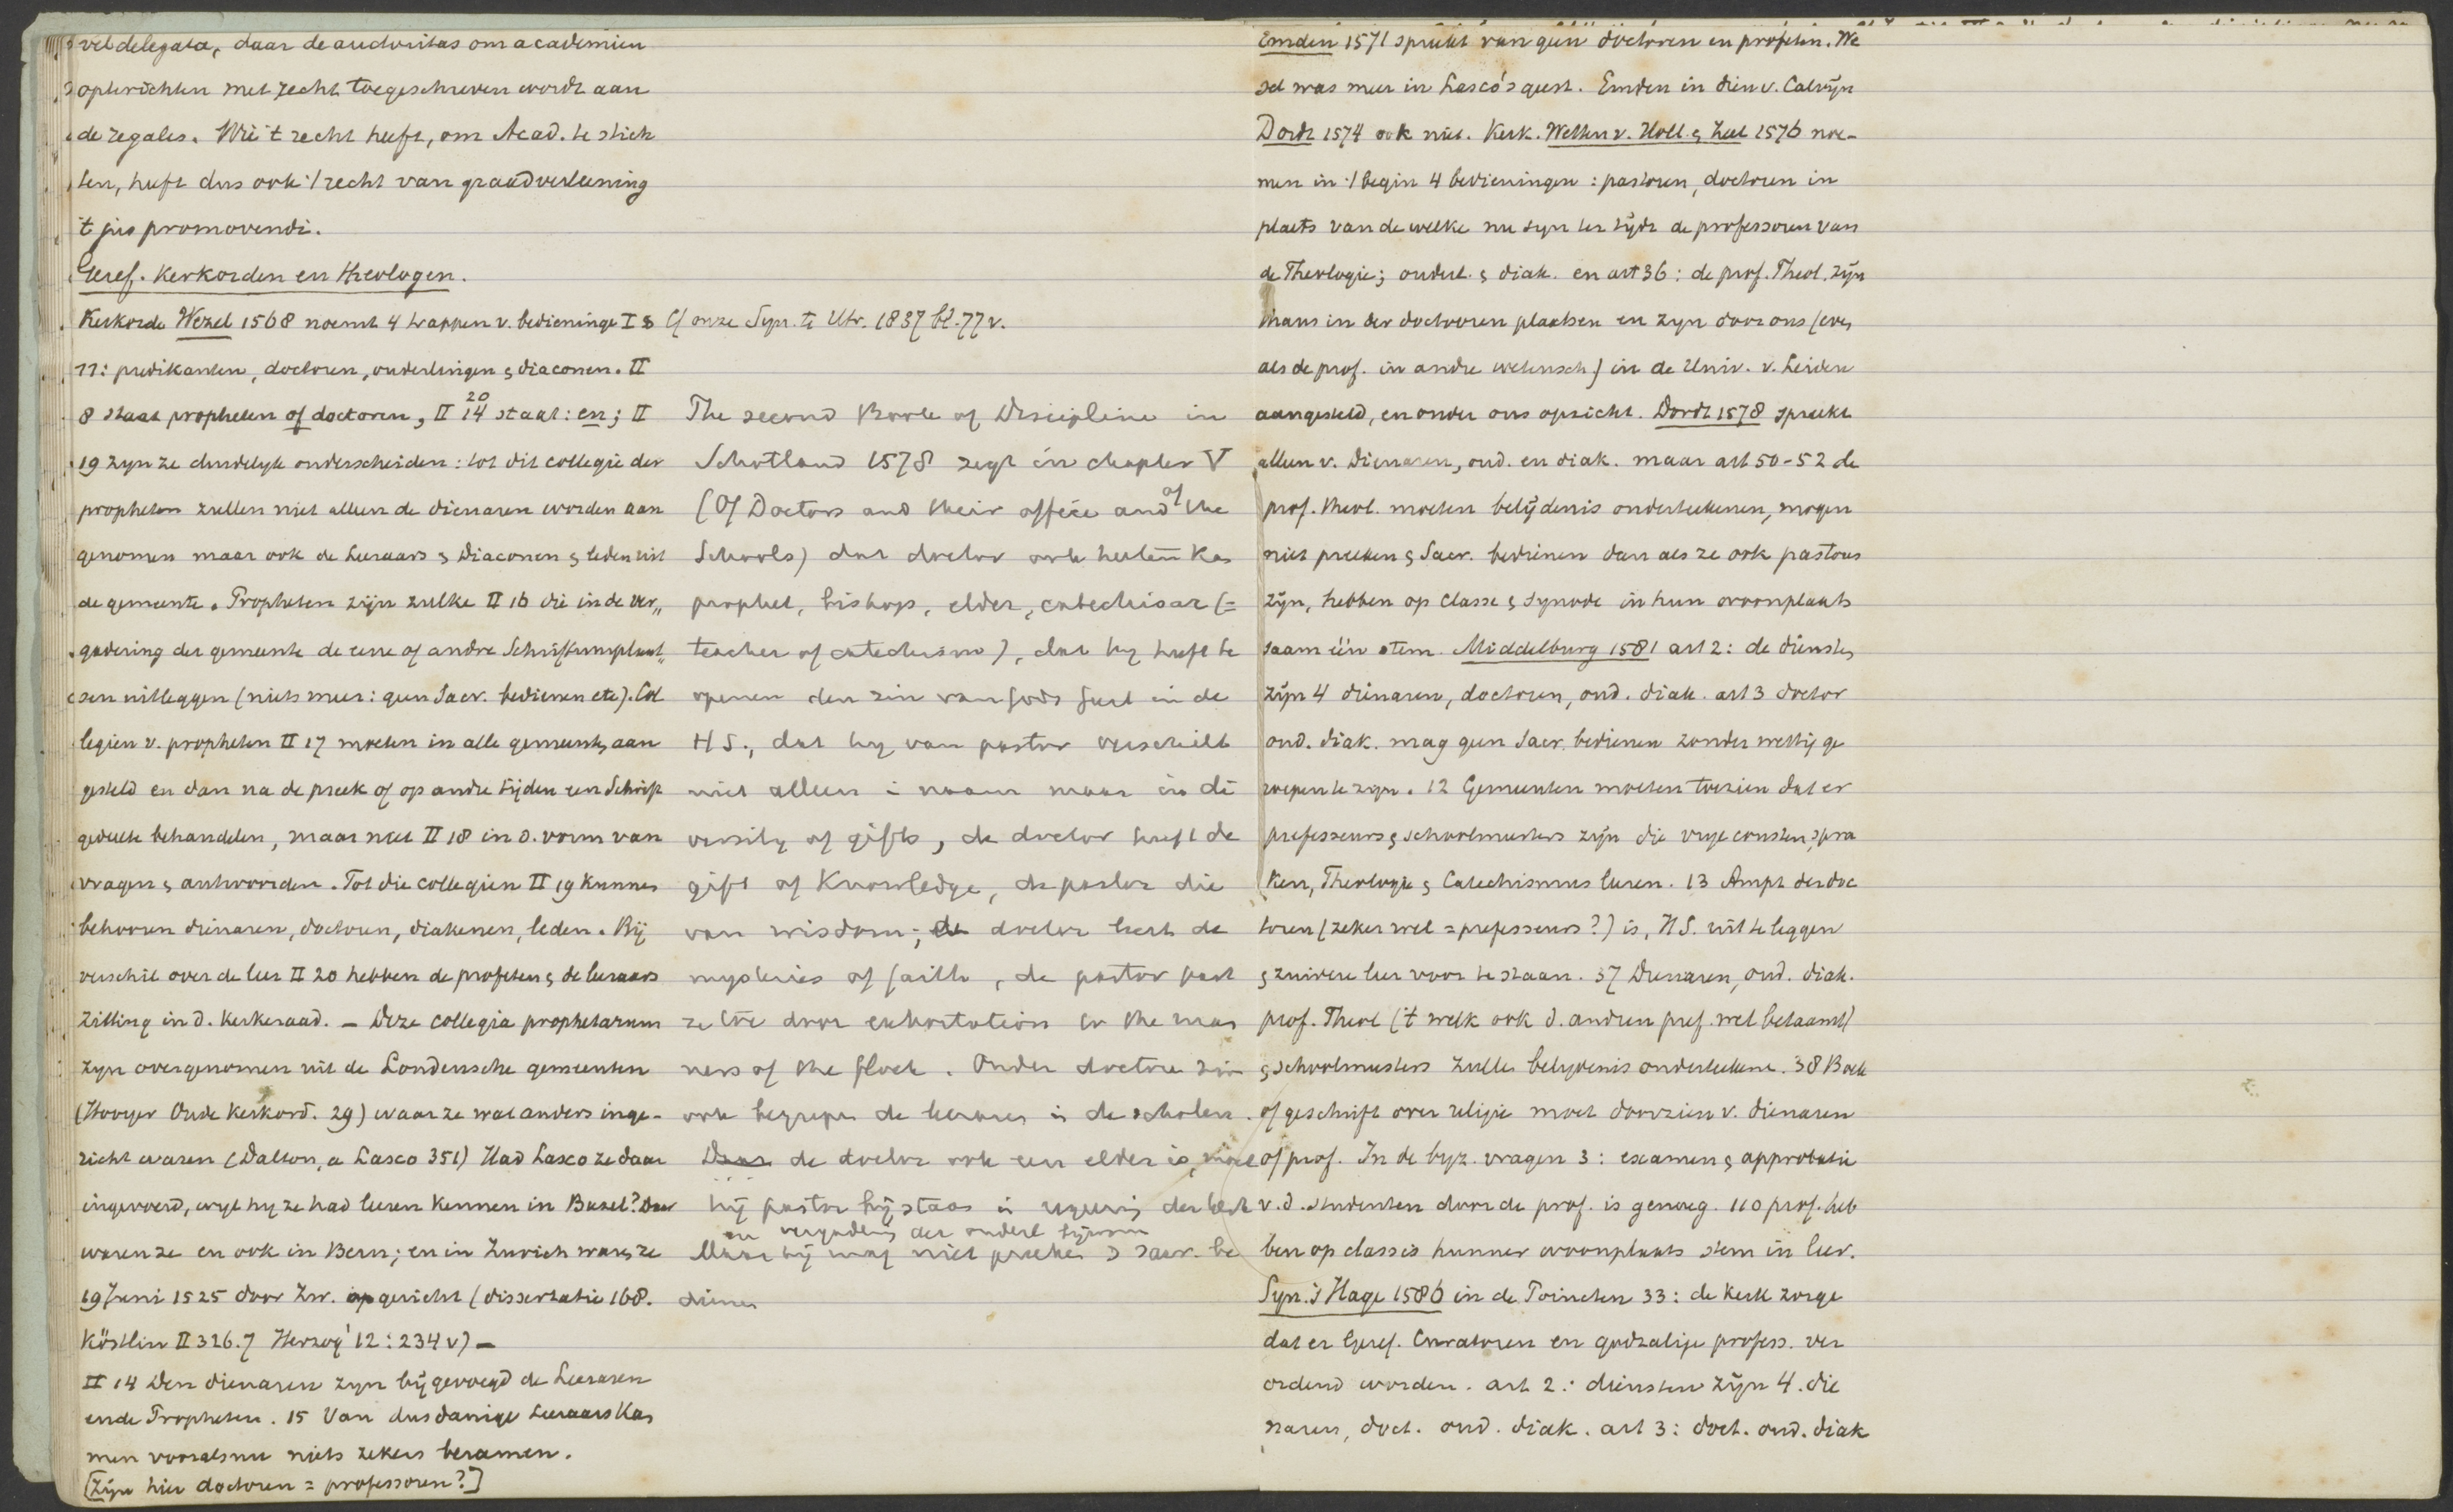 vel delegata, daar de auctoritas om academiën
opterichten met recht toegeschreven wordt aan
de regales. Wie 't recht heeft, om Acad. te stich
ten, heeft dus ook 't recht van graadverleening
't jus promovendi.
Geref. Kerkorden en theologen.
Kerkorde Wezel 1568 noemt 4 trappen v. bedieninge I §
11: predikanten, doctoren, ouderlingen & diaconen. II
8 staat propheten of doctoren, II 14 20 staat: en; II
19 zyn ze duidelyk onderscheiden: tot dit collegie der
propheten zullen niet alleen de dienaren worden aan
genomen maar ook de Leeraars & Diaconen & leden uit
de gemeente. Propheten zijn zulke II 16 die in de ver„
gadering der gemeente de eene of andre Schriftuurplaat„
sen uitleggen (niets meer: geen Sacr. bedienen etc). Col
legien v. propheten II 17 moeten in alle gemeenten aan
gesteld en dan na de preek of op andre tijden een Schrift
gedeelte behandelen, maar niet II 18 in d. vorm van
vragen & antwoorden. Tot die collegien II 19 kunnen
behooren dienaren, doctoren, diakenen, leden. Bij
verschil over de leer II 20 hebben de profeten & de leraars
zitting in d. kerkeraad. – Deze collegia prophetarum
zyn overgenomen uit de Londensche gemeenten
(Hooyer Oude Kerkord. 29) waar ze wat anders inge-
richt waren (Dalton, a Lasco 351) Had Lasco ze daar
ingevoerd, wyl hy ze had leeren kennen in Bazel? Daar
waren ze en ook in Bern; en in Zurich waren ze
19 Juni 1525 door Zw. opgericht (dissertatie 168.
Köstlin II 326.7 Herzog¹ 12: 234 v) –
II 14 Den dienaren zyn bijgevoegd de Leeraren
ende Propheten. 15 Van dusdanige Leeraars kan
men vooralsnu niets zekers beramen.
[Zijn hier doctoren = professoren?]
Cf onze Syn. te Utr. 1837 bl. 77 v.
The second Book of Discipline in
Schotland 1578 zegt in chapter V
(Of Doctors and their office and of the
Schools) dat doctor ook heeten kan
prophet, bishop, elder, catechisar (=
teacher of catechism), dat hy heeft te
openen den zin van Gods Geest in de
H S., dat hy van pastor verschilt
niet alleen in naam maar in di
versity of gifts, de doctor heeft de
gift of Knowledge, de pastor die
van wisdom; de doctor leert de
mysteries of faith, de pastor past
ze toe door exhortation to the man
ners of the flock. Onder doctoren zijn
ook begrepen de leraars in de scholen.
Daar de doctor ook een elder is, moet
hij pastor bijstaan in regeering der kerk
en vergadering der ouderl bijwonen
Maar hij mag niet preeken & sacr. be
dienen
Emden 1571 spreekt van geen doctoren en profeten. We
sel was meer in Lasco's geest. Emden in dien v. Calvijn
Dordt 1574 ook niet. Kerk. Wetten v. Holl. & Zeel 1576 noe-
men in 't begin 4 bedieningen: pastoren, doctoren in
plaets van de welke nu syn ter tijdt de professoren van
de Theologie; ouderl. & diak. en art 36: de prof. Theol. zijn
thans in der doctooren plaatsen en zyn door ons (even
als de prof. in andre wetensch.) in de Univ. v. Leiden
aangesteld, en onder ons opzicht. Dordt 1578 spreekt
alleen v. Dienaren, oud. en diak. maar art 50-52 de
prof. theol. moeten belijdenis onderteekenen, mogen
niet preeken & Sacr. bedienen dan als ze ook pastoors
zijn, hebben op Classe & synode in hun woonplaats
saam één stem. Middelburg 1581 art 2: de diensten
zijn 4 dienaren, doctoren, oud. diak. art 3 doctor
oud. diak. mag geen Sacr. bedienen zonder wettig ge
roepen te zyn. 12 Gemeenten moeten toezien dat er
professeurs & schoolmeesters zijn die vrye consten, spra
ken, Theologie & Catechismus leeren. 13 Ampt der doc
toren (zeker wel = professeurs?) is, H S. uit te leggen
& zuivere leer voor te staan. 37 Dienaren, oud. diak.
prof. Theol ('t welk ook d. andren prof. wel betaamt)
& schoolmeesters zullen belydenis onderteekenen. 38 Boek
of geschrift over religie moet doorzien v. dienaren
of prof. In de byz. vragen 3: examen & approbatie
v. d. studenten door de prof. is genoeg. 110 prof. heb
ben op classis hunner woonplaats stem in leer.
Syn. 's Hage 1586 in de Poincten 33: de Kerk zorge
dat er Geref. Curatoren en godzalige profess. ver
ordend worden. art 2: diensten zijn 4. die
naren, doct. oud. diak. art 3: doct. oud. diak